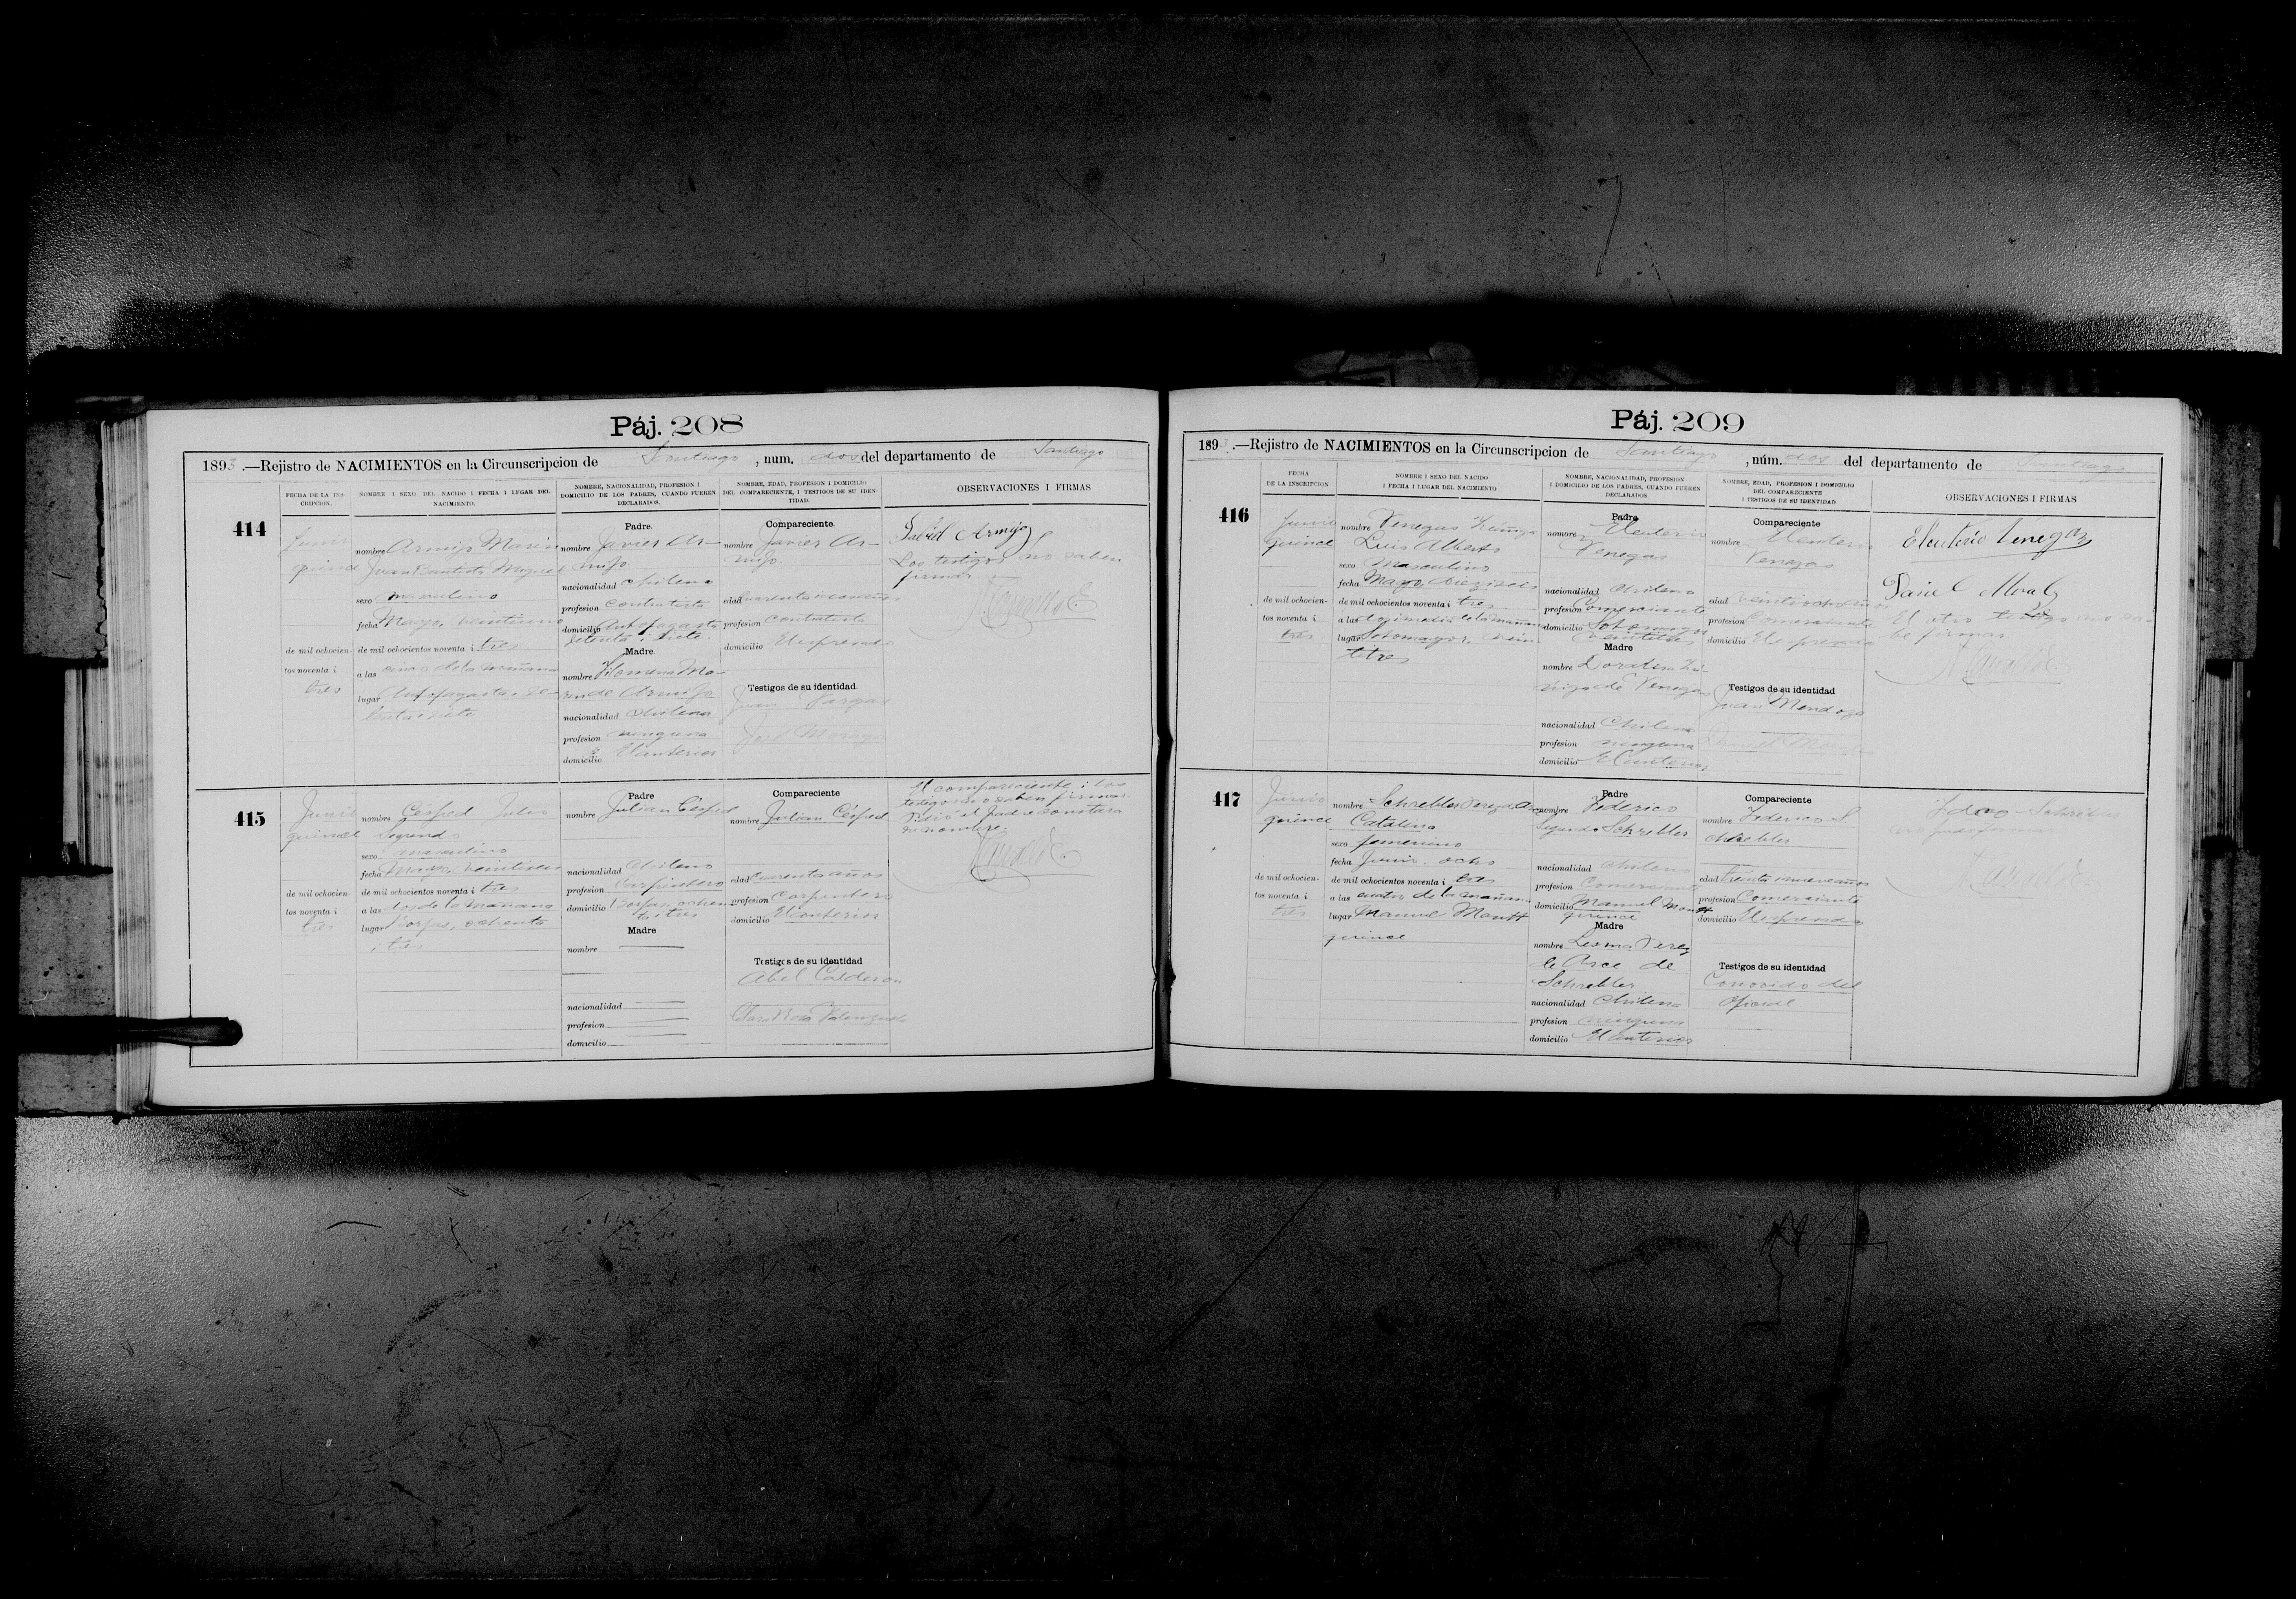 Páj. 208
1893.—Rejistro de NACIMIENTOS en la Circunscripcion de Santiago, num. dos del departamento de Santiago
FECHA DE LA INSCRIPCION.
NOMBRE I SEXO DEL NACIDO I FECHA I LUGAR DEL NACIMIENTO.
NOMBRE, NACIONALIDAD, PROFESION I DOMICILIO DE LOS PADRES, CUANDO FUEREN DECLARADOS.
NOMBRE, EDAD, PROFESION I DOMICILIO DEL COMPARECIENTE, I TESTIGOS DE SU IDENTIDAD.
OBSERVACIONES I FIRMAS
414
Junio
quince
de mil ochocien-
tos noventa i
tres
nombre Armijo Marin
Juan Bautista Miguel
sexo masculino
fecha Mayo, veintiuno
de mil ochocientos noventa i tres
a las cinco de la mañana
lugar Antofagasta, se-
tenta i siete
Padre.
nombre Javier Ar-
mijo
nacionalidad chileno
profesion contratista
domicilio Antofagasta
setenta i siete.
Madre.
nombre Filomena Ma-
rin de Armijo
nacionalidad chilena
profesion ninguna
domicilio El anterior
Compareciente.
nombre Javier Ar-
mijo
edad cuarenta años
profesion contratista
domicilio El espresado
Testigos de su identidad.
Juan Vargas
José Moraga
Armijo
Los testigos no saben
firmar
415
Junio
quince
de mil ochocien-
tos noventa i
tres
nombre Césped Julio
Segundo
sexo masculino
fecha Mayo, veintiseis
de mil ochocientos noventa i tres
a las dos de la mañana
lugar Borjas, ochenta
i tres
Padre
nombre Julian Césped
nacionalidad chileno
profesion Carpintero
domicilio Borjas, ochen-
ta i tres
Madre
nombre
nacionalidad
profesion
domicilio
Compareciente
nombre Julian Césped
edad Cuarenta años
profesion Carpintero
domicilio El anterior
Testigos de su identidad
Abel Calderon
Clara Rosa Valenzuela
El compareciente i los
testigos no saben firmar.
Pidió el padre constara
su nombre.
Páj. 209
1893.—Rejistro de NACIMIENTOS en la Circunscripcion de Santiago, núm. dos del departamento de Santiago
FECHA DE LA INSCRIPCION
NOMBRE I SEXO DEL NACIDO I FECHA I LUGAR DEL NACIMIENTO
NOMBRE, NACIONALIDAD, PROFESION I DOMICILIO DE LOS PADRES, CUANDO FUEREN DECLARADOS
NOMBRE, EDAD, PROFESION I DOMICILIO DEL COMPARECIENTE I TESTIGOS DE SU IDENTIDAD
OBSERVACIONES I FIRMAS
416
Junio
quince
de mil ochocien-
tos noventa i
tres
nombre Venegas Zúñiga
Luis Alberto
sexo Masculino
fecha Mayo, dieziseis
de mil ochocientos noventa i tres
a las dos i media de la mañana
lugar Sotomayor, vein-
titres
Padre
nombre Eleuterio
Venegas
nacionalidad chileno
profesion Comerciante
domicilio Sotomayor
veintitres
Madre
nombre Doralisa Zú-
ñiga de Venegas
nacionalidad Chilena
profesion ninguna
domicilio El anterior
Compareciente
nombre Eleuterio
Venegas
edad veintiocho años
profesion Comerciante
domicilio El espresado
Testigos de su identidad
Juan Mendoza
Daniel Morales
Eleuterio Venegas
Daniel Morales
El otro testigo no sa-
be firmar
417
Junio
quince
de mil ochocien-
tos noventa i
tres
nombre Schrebler Perez de Arce
Catalina
sexo femenino
fecha Junio ocho
de mil ochocientos noventa i tres
a las cuatro de la mañana
lugar Manuel Montt
quince
Padre
nombre Federico
Segundo Schrebler
nacionalidad chileno
profesion Comerciante
domicilio Manuel Montt
quince
Madre
nombre Leoma Perez
de Arce de
Schrebler
nacionalidad Chilena
profesion ninguna
domicilio El anterior
Compareciente
nombre Federico S
chrebler
edad treinta i nueve años
profesion Comerciante
domicilio El espresado
Testigos de su identidad
Conocido del
Oficial
Schrebler